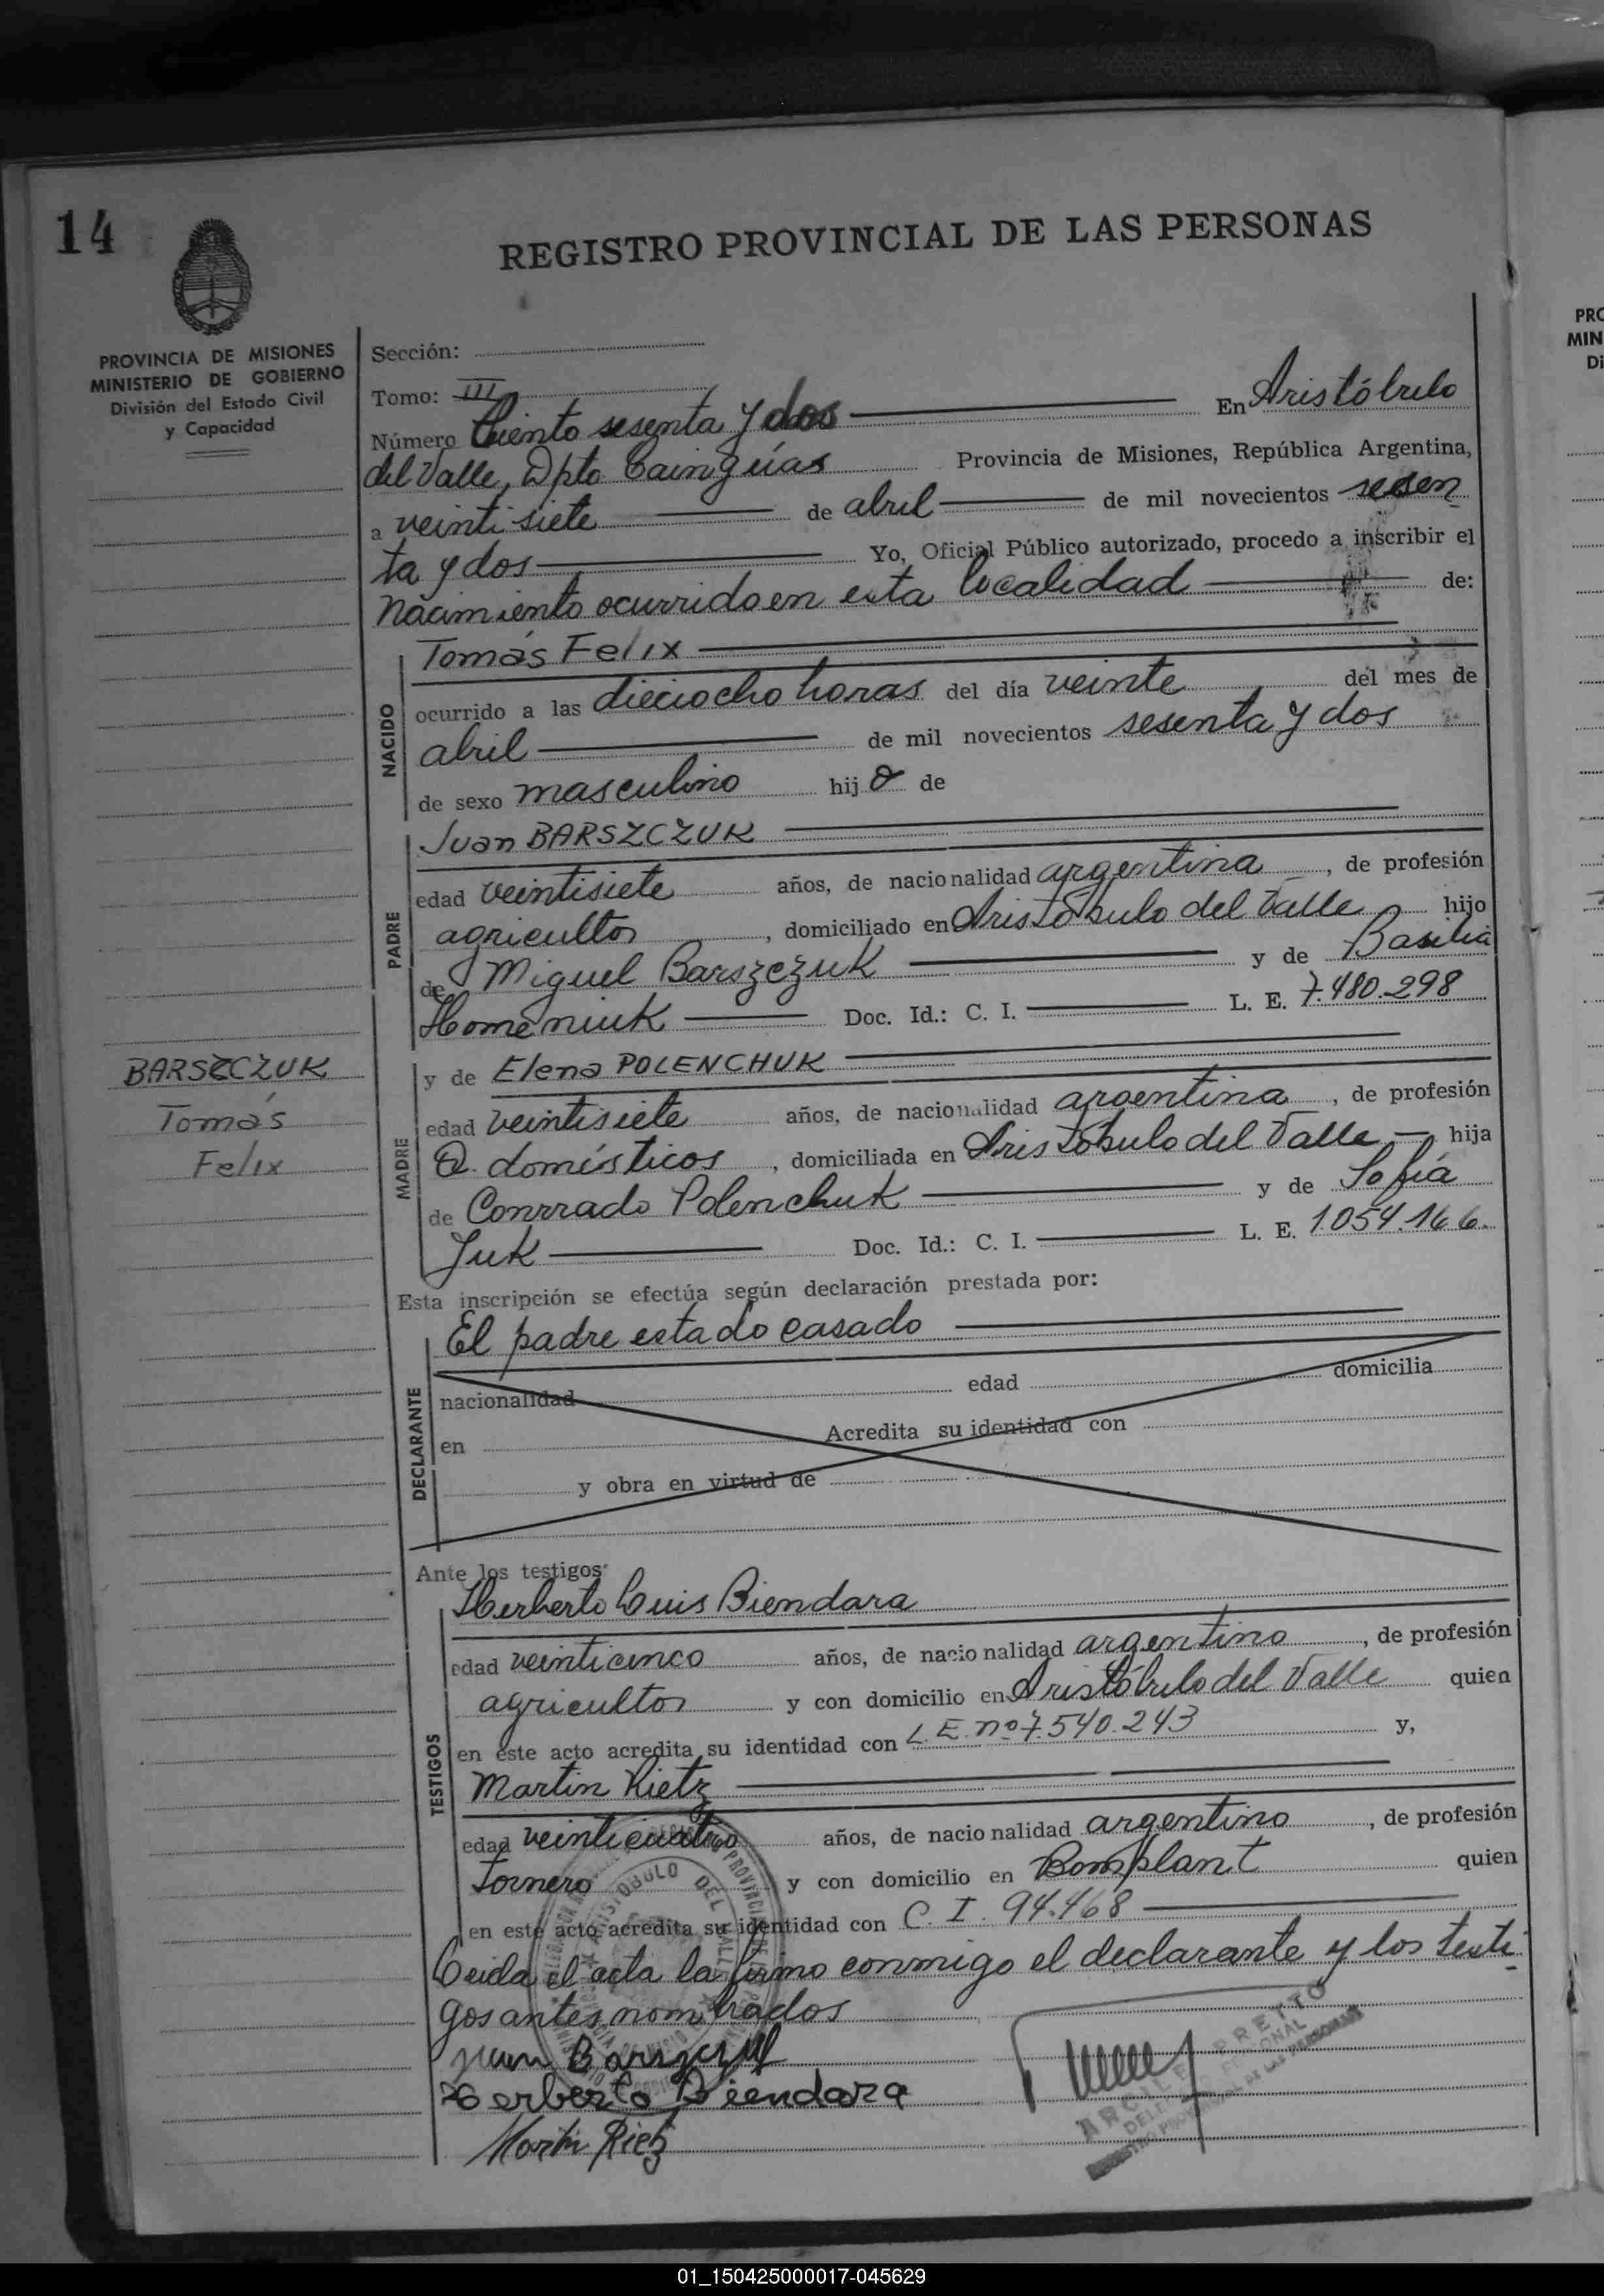 14
REGISTRO PROVINCIAL DE LAS PERSONAS
PROVINCIA DE MISIONES
MINISTERIO DE GOBIERNO
División del Estado Civil
y Capacidad
Sección:
Tomo: III
Número Ciento sesenta y dos En Aristóbulo
del Valle, Dpto Cainguías Provincia de Misiones, República Argentina,
a veinti siete de abril de mil novecientos sesen
ta y dos Yo, Oficial Público autorizado, procedo a inscribir el
Nacimiento ocurrido en esta localidad de:
NACIDO
Tomás Felix
ocurrido a las dieciocho horas del día veinte del mes de
abril de mil novecientos sesenta y dos
de sexo masculino hijo de
PADRE
Juan BARSZCZUK
edad veintisiete años, de nacionalidad argentina, de profesión
agricultor, domiciliado en Aristóbulo del Valle hijo
de Miguel Barszczuk y de Basilia
Homeniuk Doc. Id.: C. I. L. E. 7.480.298
BARSZCZUK
Tomás
Felix
MADRE
y de Elena POLENCHUK
edad veintisiete años, de nacionalidad argentina, de profesión
Q. domésticos, domiciliada en Aristóbulo del Valle hija
de Conrrado Polenchuk y de Sofía
Juk Doc. Id.: C. I. L. E. 1.054.166.
Esta inscripción se efectúa según declaración prestada por:
DECLARANTE
El padre estado casado
nacionalidad edad domicilia
en Acredita su identidad con
y obra en virtud de
Ante los testigos:
TESTIGOS
Herberto Luis Biendara
edad veinticinco años, de nacionalidad argentino, de profesión
agricultor y con domicilio en Aristóbulo del Valle quien
en este acto acredita su identidad con L.E. nº 7.540.243 y,
Martin Rietz
edad veinticuatro años, de nacionalidad argentino, de profesión
Tornero y con domicilio en Bomplant quien
en este acto acredita su identidad con C. I. 94.468
Leida el acta la firmo conmigo el declarante y los testi
gos antes nombrados
Juan Barszczuk
Herberto Biendara
Martin Rietz
ARISTOBULO DEL VALLE
PRETTO
01_150425000017-045629